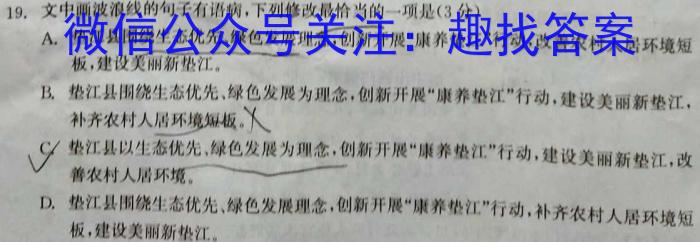 19. 文中画波浪线的句子有语病,下列修改最恰当的一项是(3分)
微信公众号关注:趣找答案
A. 垫江县围绕生态优先、绿色发展理念,创新开展“康养垫江”行动,改善农村人居环境短
板,建设美丽新垫江。
B. 垫江县围绕生态优先、绿色发展为理念,创新开展“康养垫江”行动,建设美丽新垫江,
补齐农村人居环境短板。
C. 垫江县以生态优先、绿色发展为理念,创新开展“康养垫江”行动,建设美丽新垫江,改
善农村人居环境。
D. 垫江县围绕生态优先、绿色发展理念,创新开展“康养垫江”行动,补齐农村人居环境短
板,建设美丽新垫江。